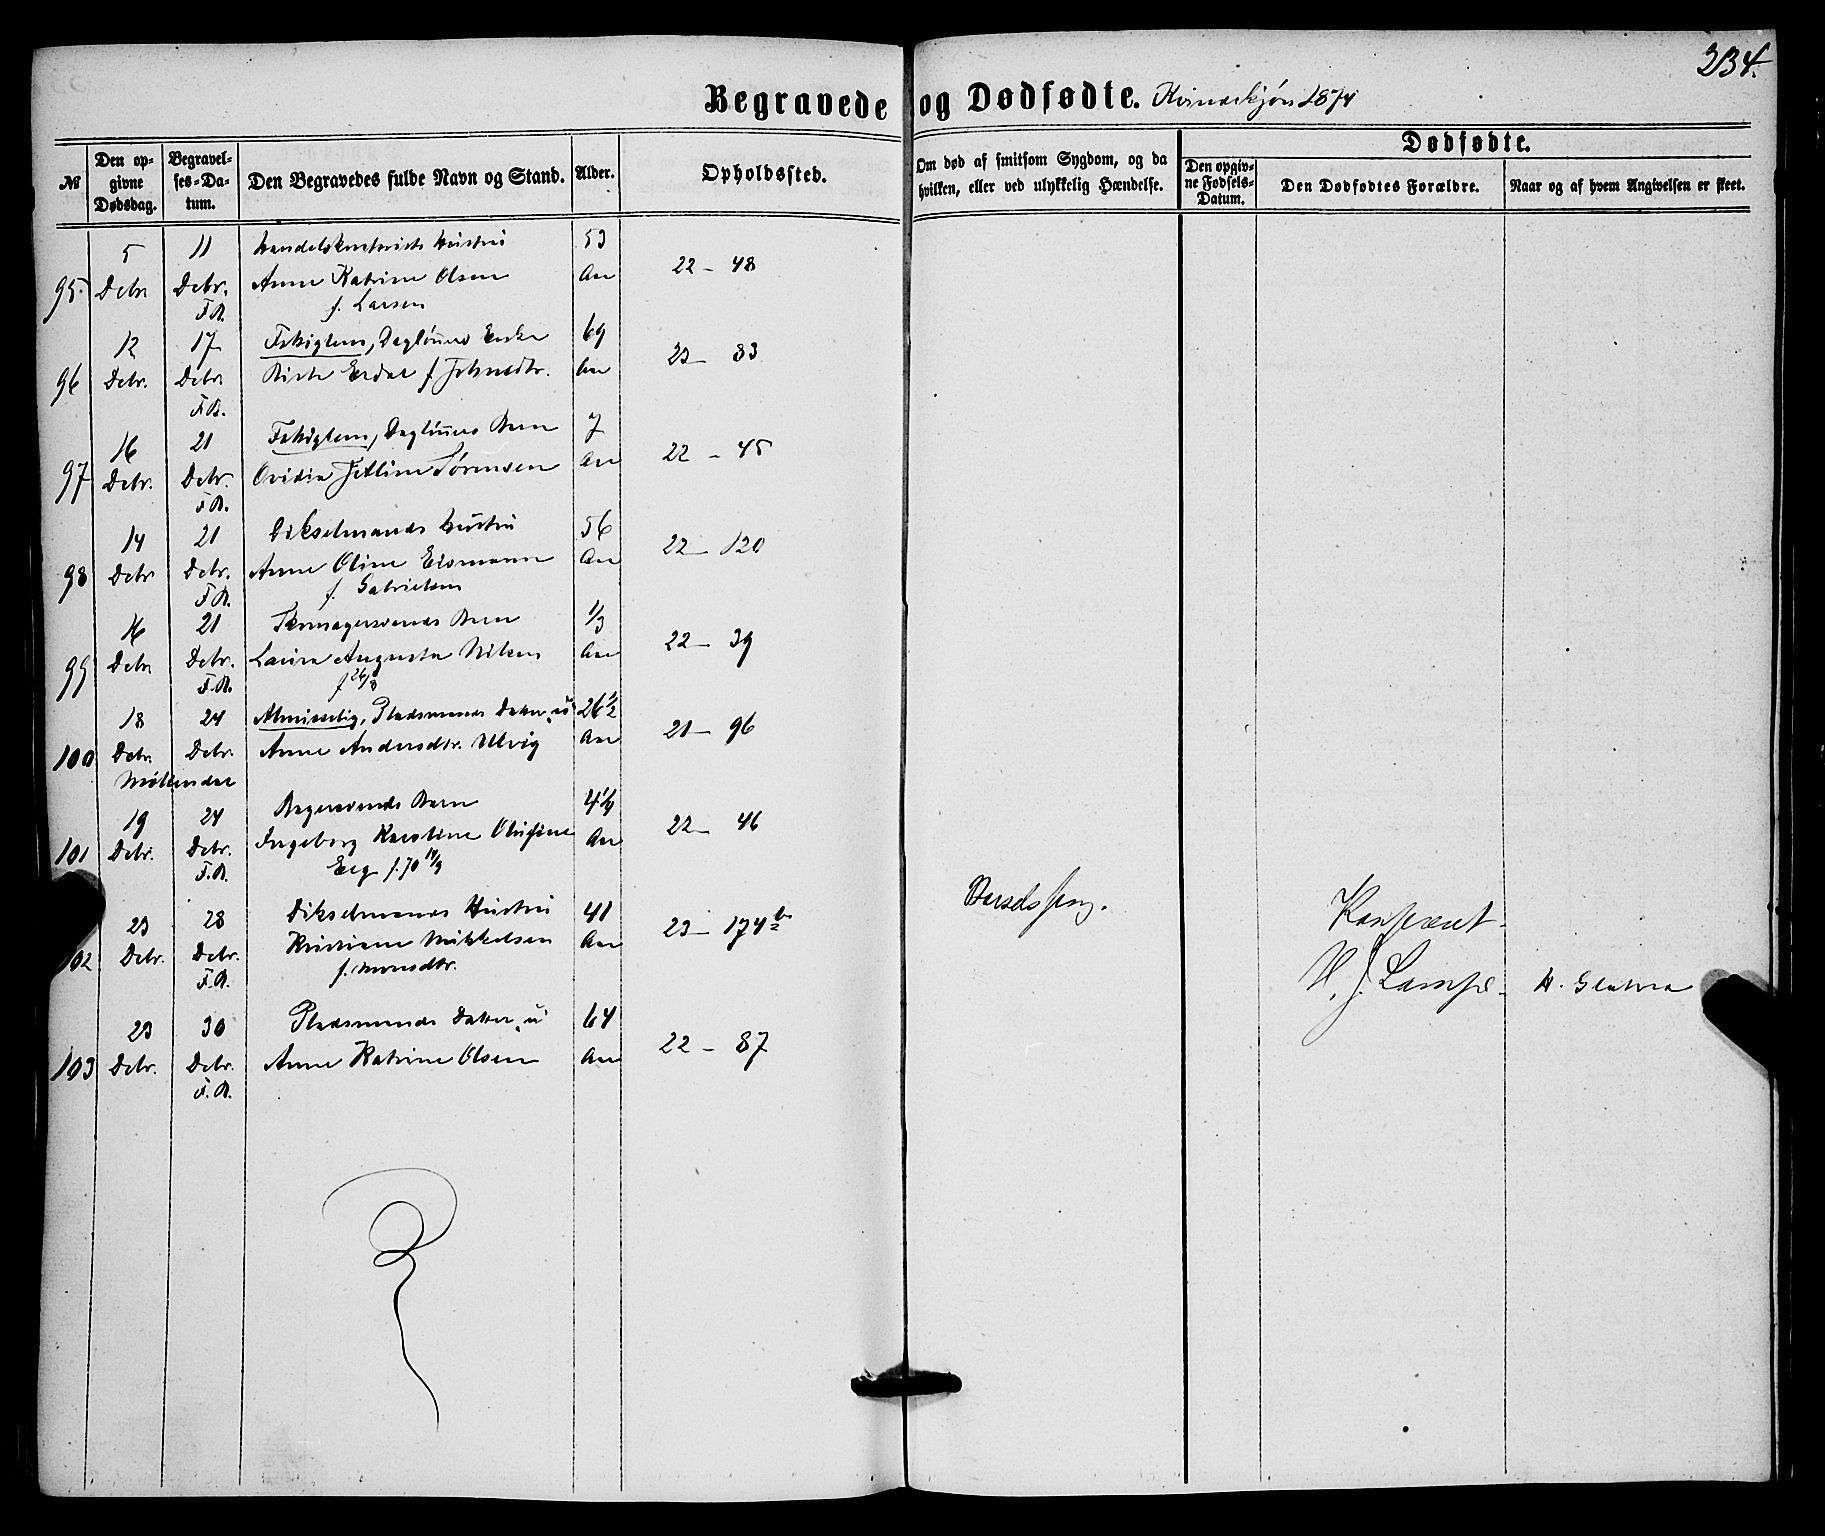 234.
Begravede og Dødfødte. Kvindekjøn 1874
№
Den opgivne Dødsdag.
Begravelses-Datum.
Den Begravedes fulde Navn og Stand.
Alder.
Opholdssted.
Om død af smitsom Sygdom, og da hvilken, eller ved ulykkelig Hændelse.
Dødfødte.
Den opgivne Fødsels-Datum.
Den Dødfødtes Forældre.
Naar og af hvem Angivelsen er skeet.
5 11 Hustru 53
95. Debr. Debr. Anne Katrine Olsen Aar 22 – 48
F.B. f. Larsen
12 17 Fattiglem, Dagløners Enke 69
96 Debr. Debr. f. Aar 23 – 83
F.B.
16 21 Fattiglem, Dagløners Barn 7
97 Debr. Debr. Ovidia Sørensen Aar 22 – 45
F.B.
14 21 Dikselmands Hustru 56
98 Debr. Debr. Anne Oline Eismann Aar 22 – 120
F.B. f. Gabrielsen
16 21 Barn 1/3
99 Debr. Debr. Laura Augusta Nilsen Aar 22 – 39
F.B. f 26/8
18 24 Almisselig, Pladsmands Datter, u 26 1/2
100 Debr. Debr. Anne Andersdtr. Ulvig Aar 21 – 96
19 24 Bagersvends Barn 4 1/4
101 Debr. Debr. Ingeborg Karoline Olufine Aar 22 – 46
F.B. Eeg f. 70
23 28 Dikselmands Hustru 41
102 Debr. Debr. Kristiane Mikkelsen Aar 23 – 174 b Barselsseng.
F.B. f. Monsdtr.
23 30 Pladsmands Datter, u 64
103 Debr. Debr. Anne Katrine Olsen Aar 22 – 87
F.B.
Konfereret
N. J. Lampe